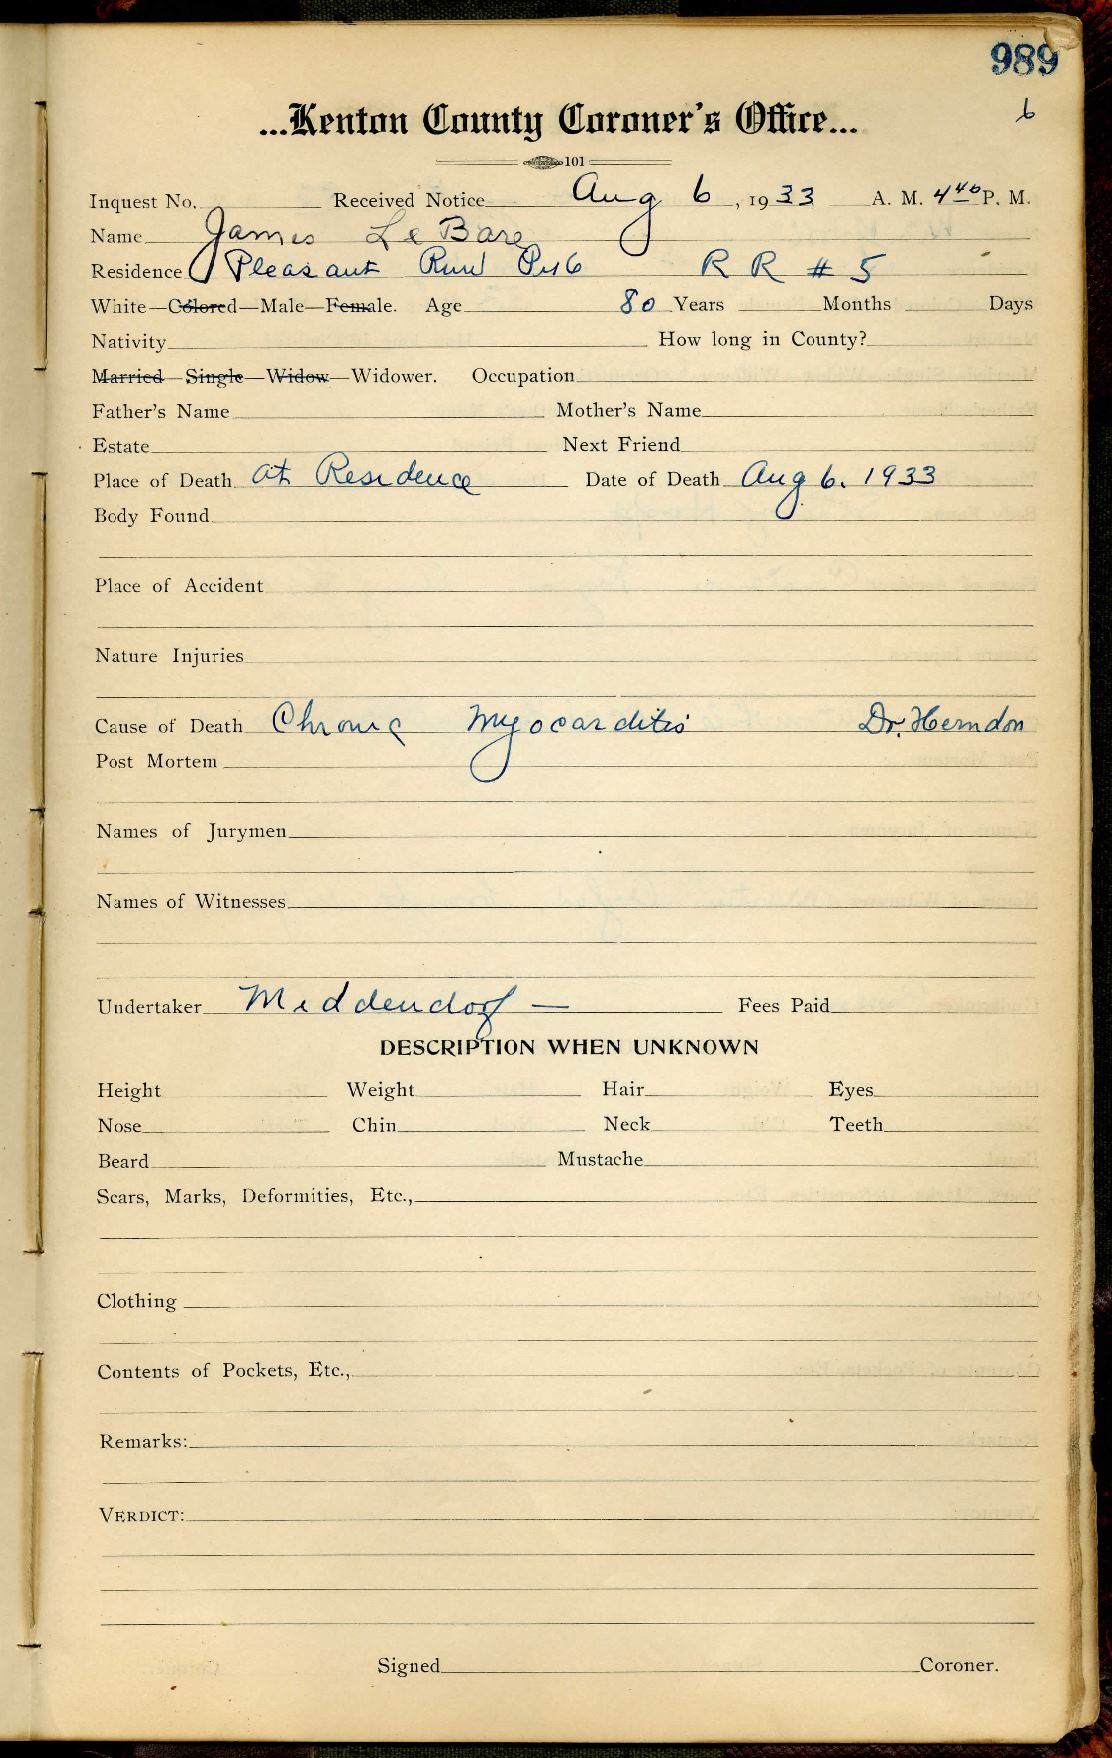 989
6
...Kenton County Coroner's Office...
101
Inquest No. Received Notice Aug 6, 1933 A. M. 4 40 P. M.
Name James Le Bare
Residence Pleasant Run RR #5
White—Colored—Male—Female. Age 80 Years Months Days
Nativity How long in County?
Married—Single—Widow—Widower. Occupation
Father's Name Mother's Name
Estate Next Friend
Place of Death at Residence Date of Death Aug 6. 1933
Body Found
Place of Accident
Nature Injuries
Cause of Death Chronic Myocarditis Dr. Herndon
Post Mortem
Names of Jurymen
Names of Witnesses
Undertaker Middendorf — Fees Paid
DESCRIPTION WHEN UNKNOWN
Height Weight Hair Eyes
Nose Chin Neck Teeth
Beard Mustache
Scars, Marks, Deformities, Etc.,
Clothing
Contents of Pockets, Etc.,
Remarks:
VERDICT:
Signed Coroner.